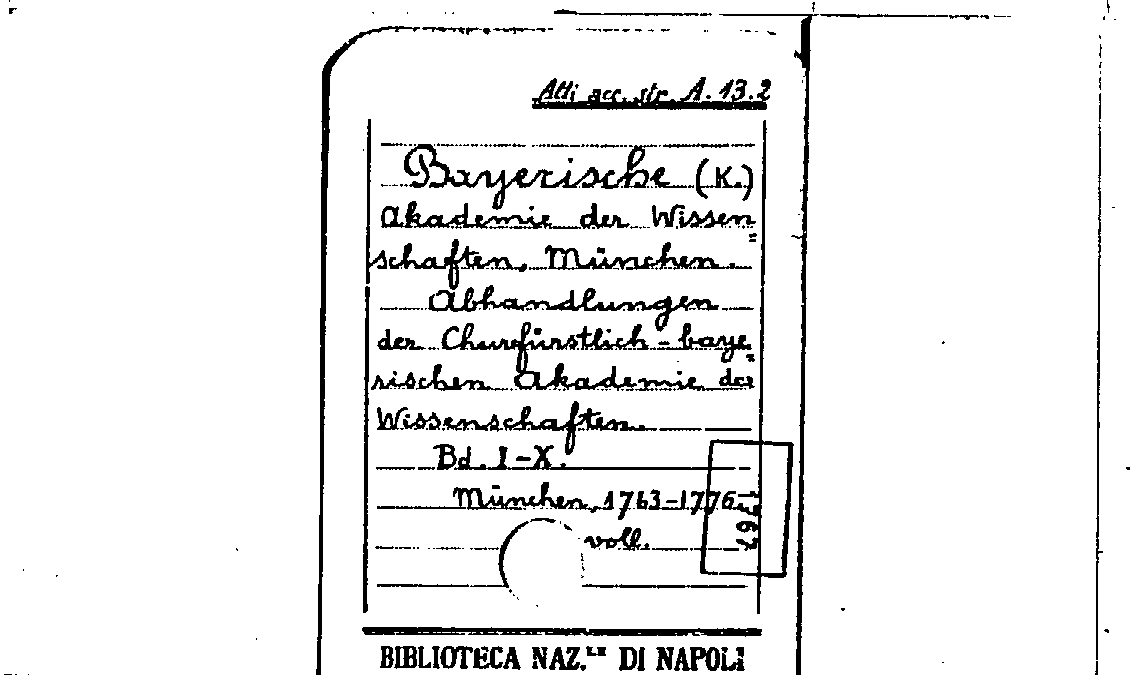 Atti acc. str. A. 13.2
Bayerische (K.)
Akademie der Wissen„
schaften, München.
Abhandlungen
der Churfürstlich-baye„
rischen Akademie der
Wissenschaften.
Bd. I-X.
München, 1763-1776.
voll.
1767
BIBLIOTECA NAZ.LE DI NAPOLI